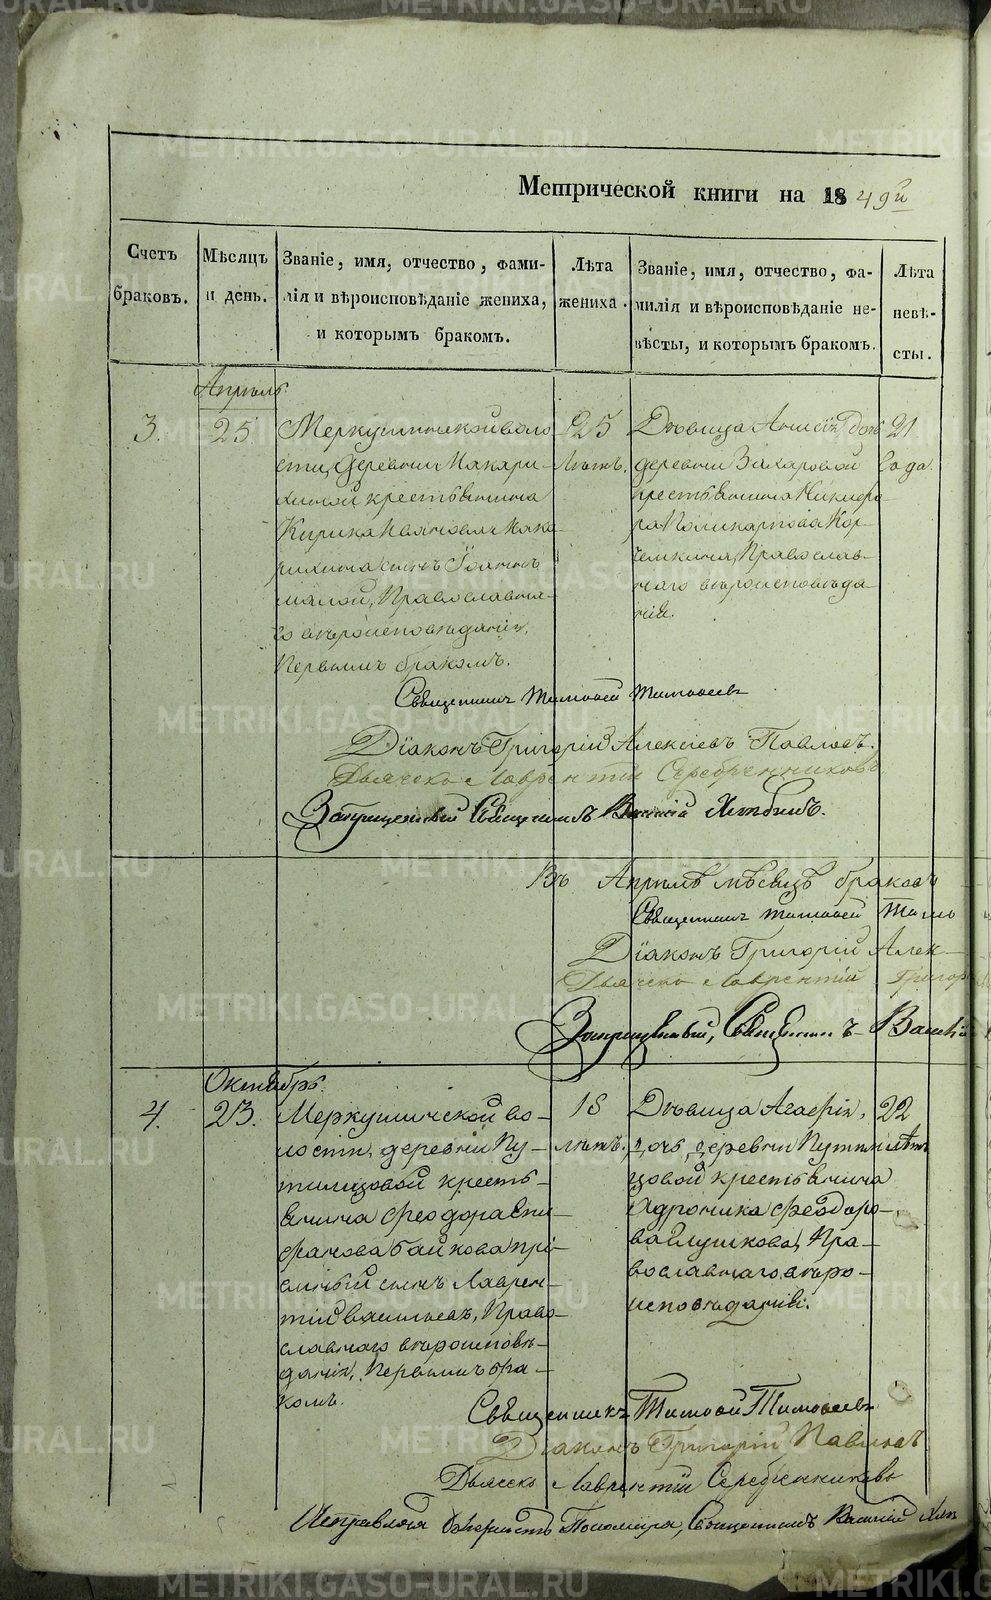 Метрической книги на 1849й
Счетъ браковъ.
Мѣсяцъ и день.
Званіе, имя, отчество, фами-
лія и вѣроисповѣданіе жениха,
и которымъ бракомъ.
Лѣта жениха.
Званіе, имя, отчество, фа-
милія и вѣроисповѣданіе не-
вѣсты, и которымъ бракомъ.
Лѣта невѣ-
сты.
Апрѣль
3.
25.
Меркушинской воло
сти, деревни Макари-
хиной крестьянина
Кирика Иванова Мака-
рихина сынъ Іоаннъ
малой, Православна-
го вѣроисповѣданія,
Первымъ бракомъ.
25
лѣтъ.
Дѣвица Анисія, дочь
деревни Захаровой
крестьянина Никифо
ра Поликарпова Кор-
чемкина, Православ-
наго вѣроисповѣда-
нія.
21
года.
Священникъ Тимофей Тимофеевъ
Діаконъ Григорій Алексѣевъ Павловъ.
Дьячекъ Лаврентій Серебренниковъ
Запрещенный Священникъ Василій Хлыбинъ.
Въ Апрѣлѣ мѣсяцѣ браковъ
Священникъ Тимофей Тимо
Діаконъ Григорій Алек-
Дьячекъ Лаврентій Григор
Запрещенный, Священникъ Василій
Октябрь.
4.
23.
Меркушинской во-
лости, деревни Пу-
тилцовой кресть-
янина Феодора Епи-
фанова Байкова прі-
емный сынъ Лаврен-
тій Васильевъ, Право-
славнаго вѣроисповѣ-
данія, Первымъ бра-
комъ.
18
лѣтъ.
Дѣвица Агафія,
дочь деревни Путил
цовой крестьянина
Адроника Феодоро-
ва Глушкова, Пра-
вославнаго вѣро-
исповѣданія.
22
лѣтъ
Священникъ Тимофей Тимофеевъ
Діаконъ Григорій Павловъ
Дьячекъ Лаврентій Серебренниковъ
Исправляя должность Пономаря, Священникъ Василій Хлы
METRIKI.GASO-URAL.RU